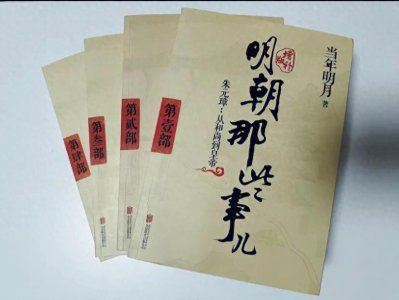 当年明月 著
增补版
明朝那些事儿
朱元璋：从和尚到皇帝
第壹部
第贰部
第叁部
第肆部